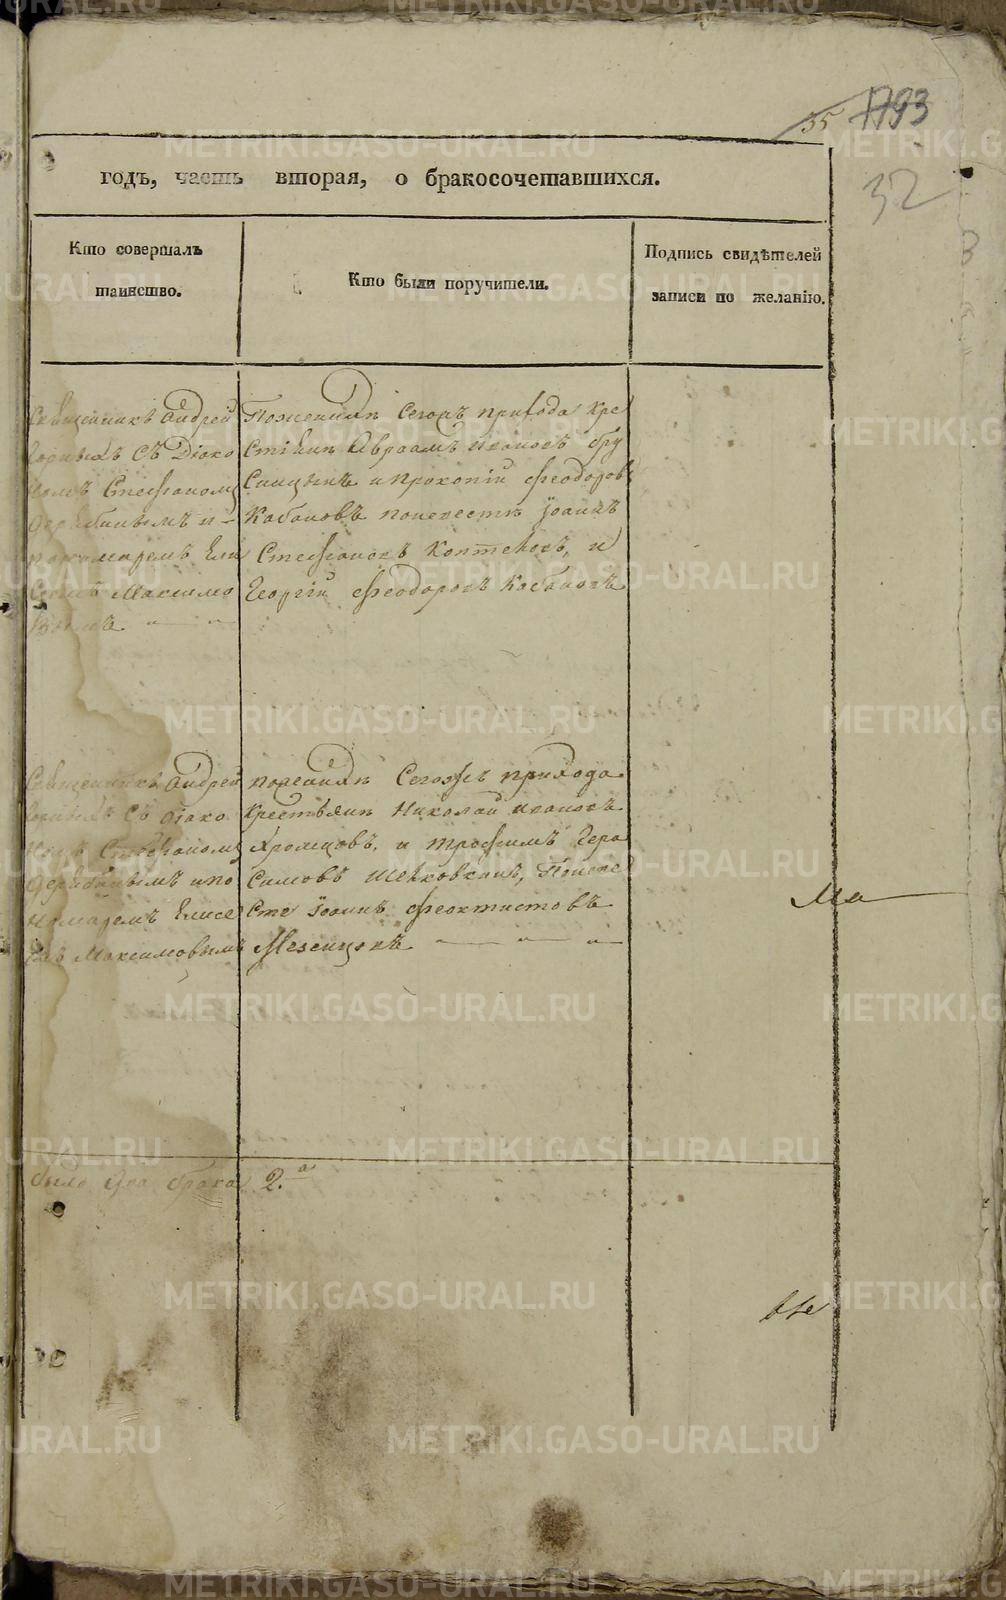 35 1793
32
годъ, часть вторая, о бракосочетавшихся.
Кто совершалъ
таинство.
Кто были поручители.
Подпись свидѣтелей
записи по желанію.
Священникъ Андрей
съ Діако
номъ Стефаномъ
и
пономаремъ Ели
Максимо
вымъ
Поженихѣ Сегожъ прихода Кре
стьяни Авраамъ Ивановъ Бру
сницынъ и Прокопій Феодоровъ
Кабановъ поневестѣ Іоаннъ
Стефановъ Коптеловъ, и
Георгій Феодоровъ Кабановъ
Священникъ Андрей
съ діако
номъ Стефаномъ
и по
номаремъ Елисе
емъ Максимовымъ
поженихѣ Сегожъ прихода
Крестьяни Николай Ивановъ
Хромцовъ, и Трофимъ Гера
симовъ, Поневе
сте Іоаннъ Феоктистовъ
Мезенцовъ
было два брака 2.а
Ма
METRIKI.GASO-URAL.RU